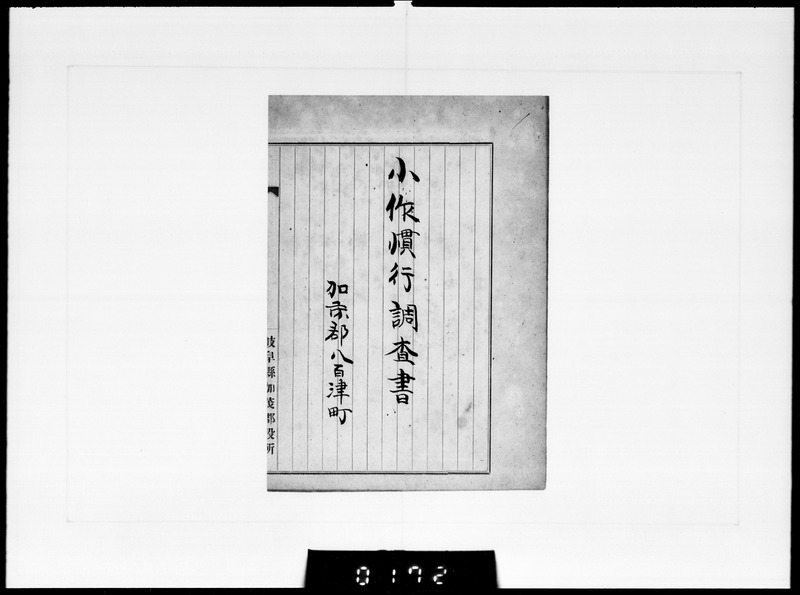 小作慣行調査書
加茂郡八百津町
岐阜縣加茂郡役所
0172